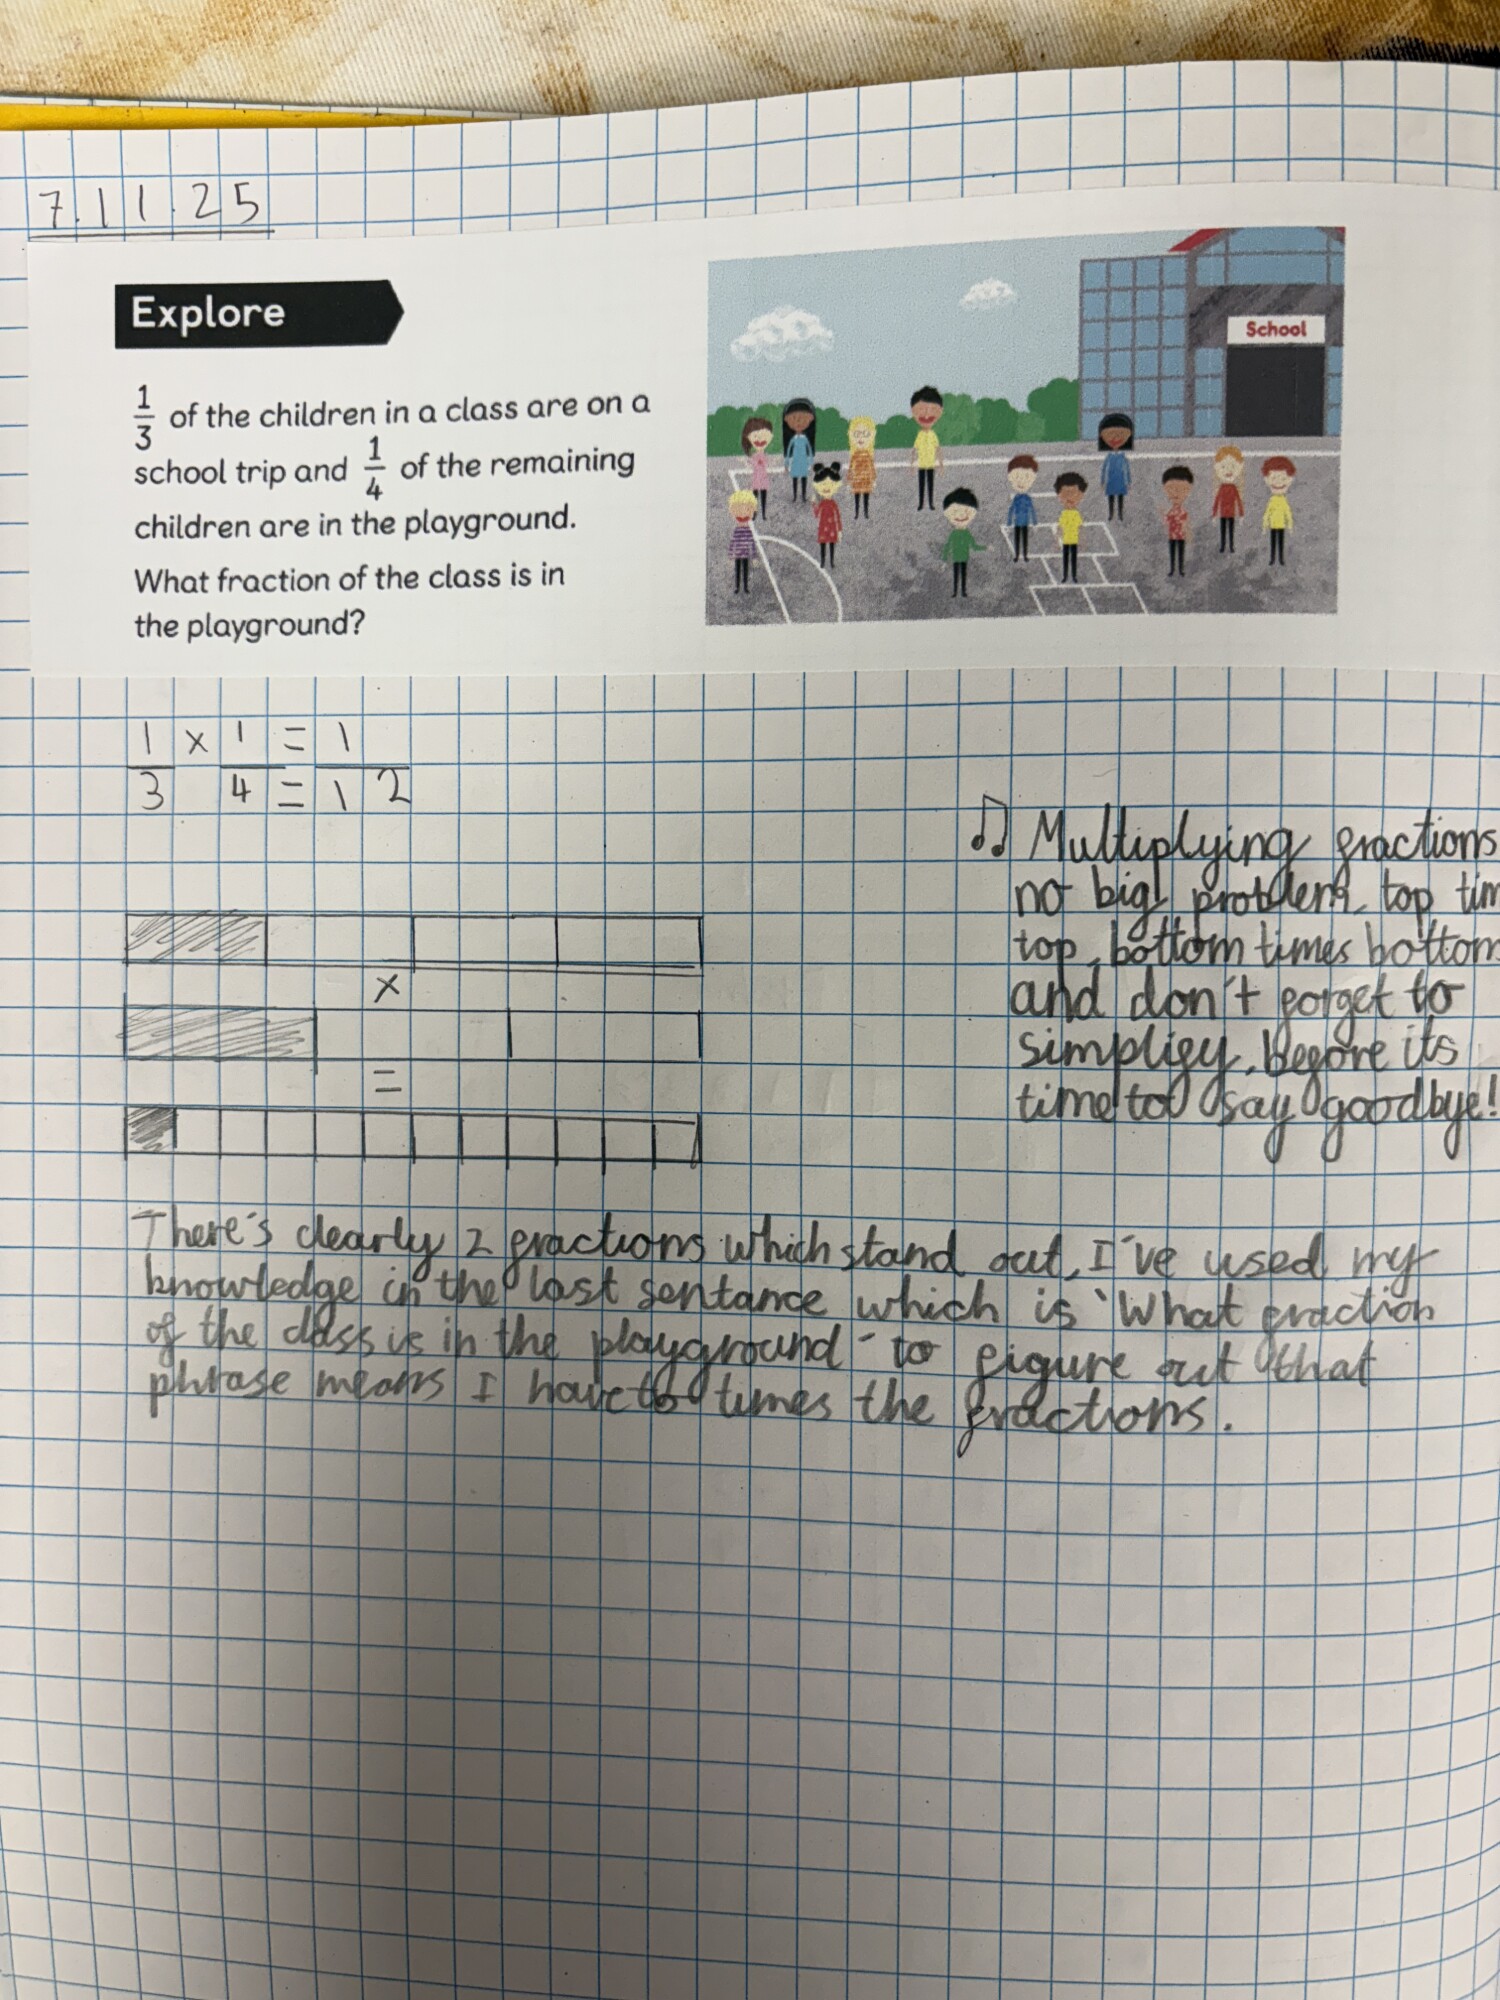 7.11.25
Explore
1/3 of the children in a class are on a
school trip and 1/4 of the remaining
children are in the playground.
What fraction of the class is in
the playground?
School
1/3 × 1/4 = 1/12
♫ Multiplying fractions
no big problem, top tim
top, bottom times bottom
and don't forget to
simplify, before its
time to say goodbye!
×
=
There's clearly 2 fractions which stand out, I've used my
knowledge in the last sentance which is 'What fraction
of the class is in the playground' to figure out that
phrase means I have to times the fractions.